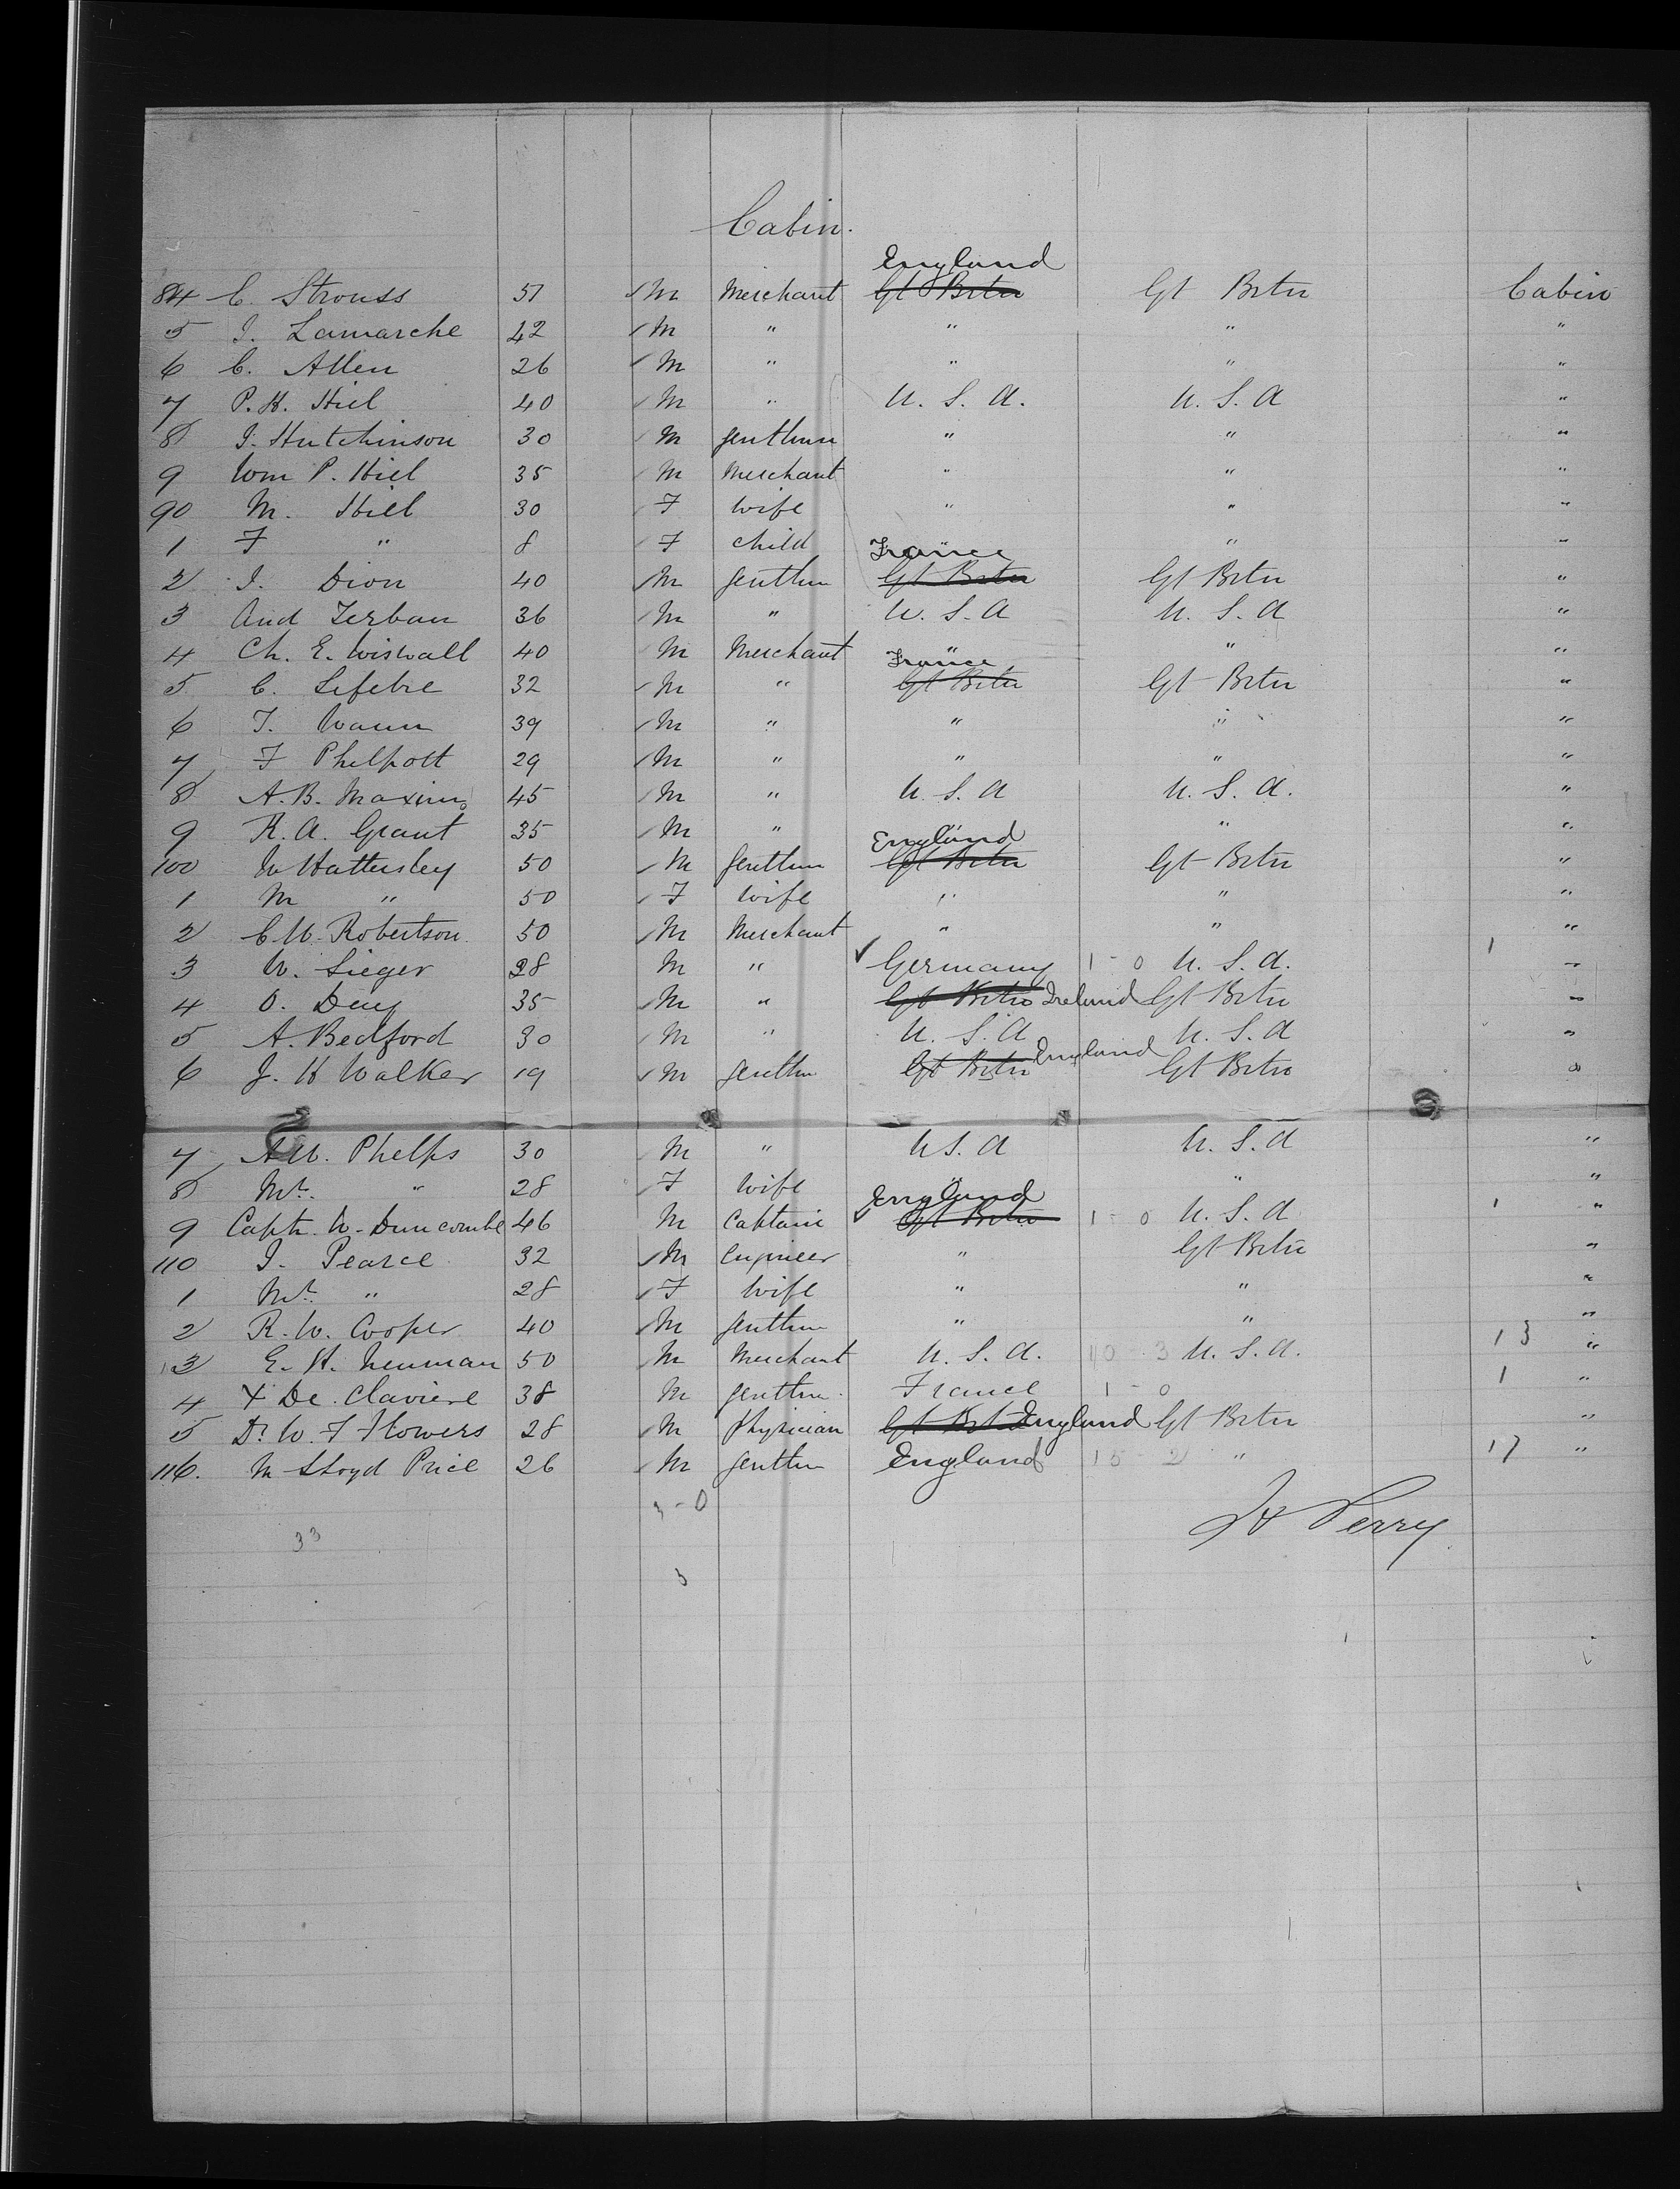 Cabin.
England
84 C. Strouss 51 M Merchant Gt Brtn Gt Brtn Cabin
5 J. Lamarche 42 M " " " "
6 C. Allen 26 M " " " "
7 P. H. Hill 40 M " U. S. A. U. S. A "
8 J. Hutchinson 30 M gentlmn " " "
9 Wm P. Hill 35 M Merchant " " "
90 M. Hill 30 F Wife " " "
1 F " 8 F child " " "
France
2 J. Dion 40 M gentlm Gt Brtn Gt Brtn "
3 Aud Zerban 36 M " U. S. A U. S. A "
4 Ch. E. Wiswall 40 M Merchant " " "
France
5 C. Lefebre 32 M " Gt Brtn Gt Brtn "
6 T. Waun 39 M " " " "
7 F Phelpott 29 M " " " "
8 A. B. Maxim 45 M " U. S. A U. S. A. "
9 R. A. Grant 35 M " " " "
England
100 W Hattersley 50 M gentlmn Gt Brtn Gt Brtn "
1 M " 50 F Wife " " "
2 C W. Robertson 50 M Merchant " " "
3 W. Sieger 28 M " Germany 1 - 0 U. S. A. 1 "
4 O. Deny 35 M " Gt Brtn Ireland Gt Brtn "
5 A. Bedford 30 M " U. S. A U. S. A "
6 J. H Walker 19 M gentlm Gt Brtn England Gt Brtn "
7 A W. Phelps 30 M " U S. A U. S. A "
8 Mrs. " 28 F Wife " " "
England
9 Captn. W. Duncombe 46 M Captain Gt Brtn 1 - 0 U. S. A 1 "
110 J. Pearce 32 M Engineer " Gt Brtn "
1 Mrs " 28 F Wife " " "
2 R. W. Cooper 40 M gentlmn " " "
13 E. H. Neuman 50 M Merchant U. S. A. 10 - 3 U. S. A. 13 "
4 X De. Claviere 38 M gentlm. France 1 - 0 1 "
5 Dr. W. F Flowers 28 M Physician Gt Brt England Gt Brtn "
116. M Lloyd Price 26 M gentlm England 15 - 2 " 17 "
3 - 0
Perry
33
3